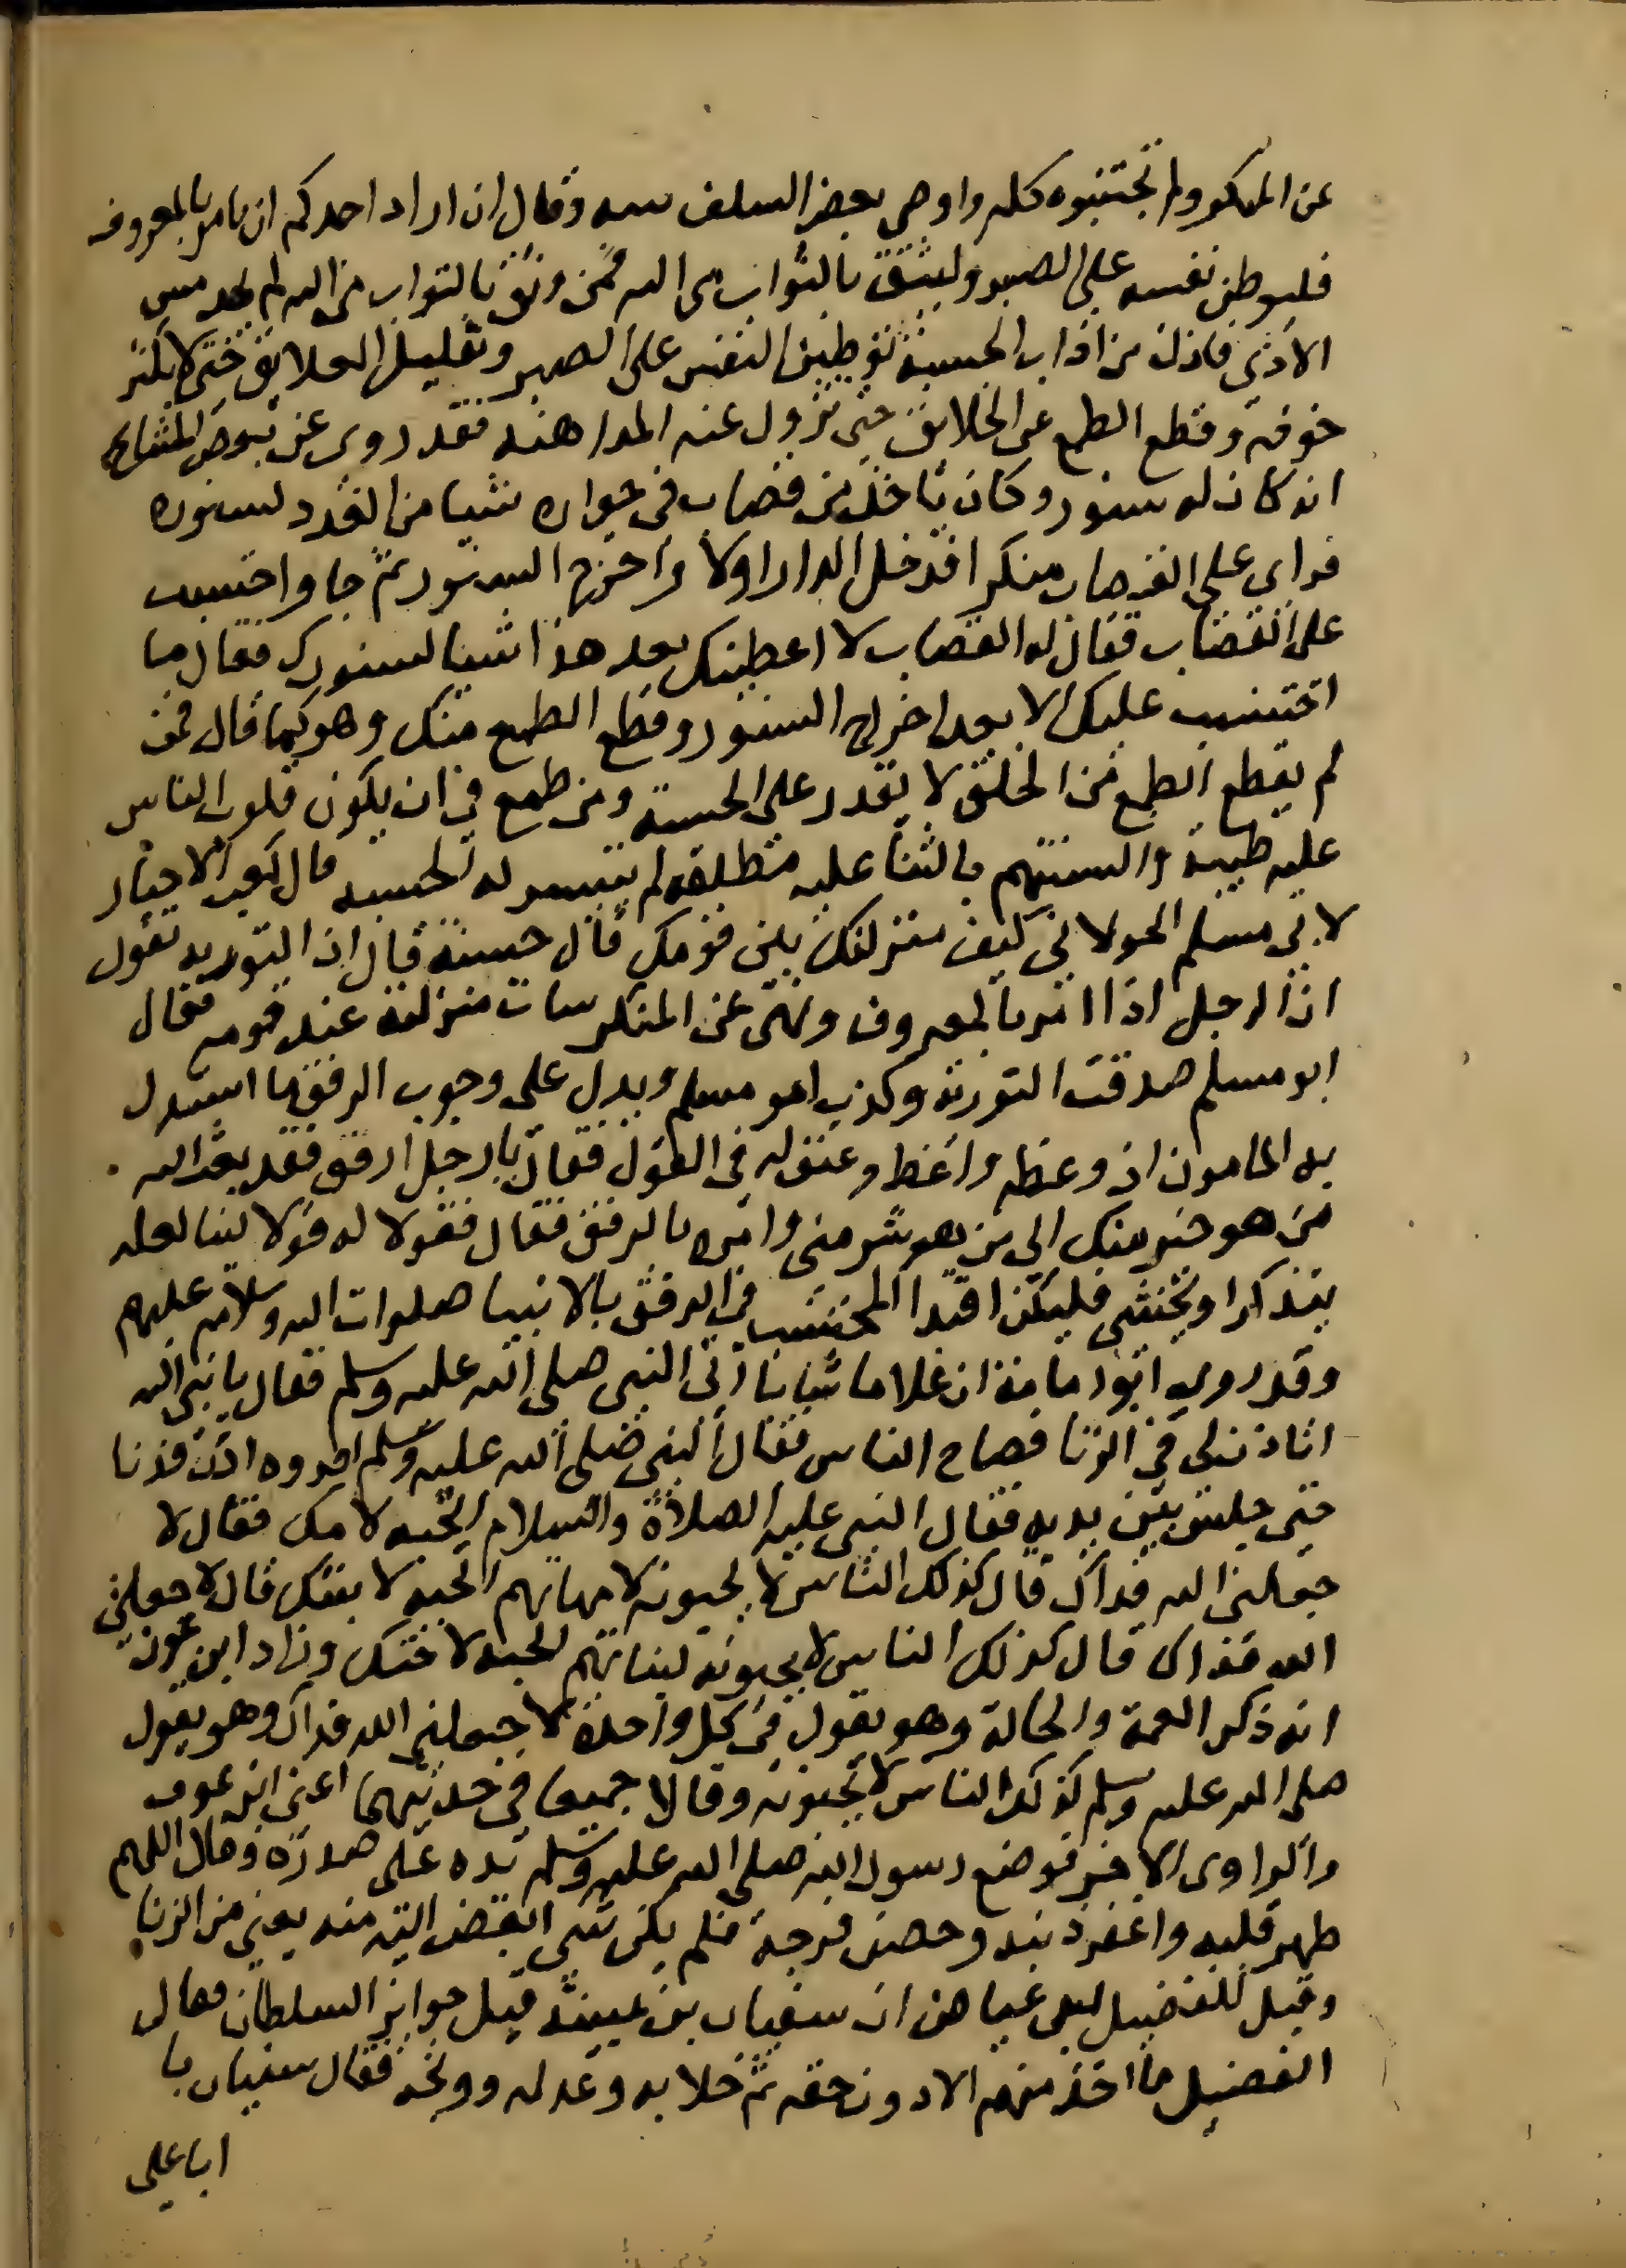 عن المنكر وان لم تجتنبوه كله واوصى بعض السلف بنيه وقال ان اراد احدكم ان يامر بالمعروف
فليوطن نفسه على الصبر وليثق بالثواب من الله فمن وثق بالثواب من الله لم يجد مس
الاذى فاذن من اداب الحسبة توطين النفس على الصبر وتقليل العلايق حتى لا يكثر
خوفه وقطع الطمع عن الخلايق حتى تزول عنه المداهنه فقد روى عن بعض المشايخ
انه كان له سنور وكان ياخذ من قصاب فى جواره شيا من الغدد لسنوره
فراى على القصاب منكرا فدخل الدار اولا واخرج السنور ثم جا واحتسب
على القصاب فقال له القصاب لا اعطيتك بعد هذا شيا لسنورك فقال ما
احتسبت عليك الا بعد اخراج السنور وقطع الطمع منك وهو كما قال فمن
لم يقطع الطمع من الخلق لا يقدر على الحسبة ومن طمع في ان يكون قلوب الناس
عليه طيبة والسنتهم بالثنا عليه منطلقه لم تتيسر له الحسبه قال كعب الاحبار
لابى مسلم الخولانى كيف منزلتك بين قومك قال حسنة قال ان التوريه تقول
ان الرجل اذا امر بالمعروف ونهى عن المنكر سات منزلته عند قومه فقال
ابو مسلم صدقت التورته وكذب ابو مسلم ويدل على وجوب الرفق ما استدل
به المامون اذ وعظه واعظ وعنف له فى القول فقال يا رجل ارفق فقد بعث الله
من هو خير منك الى من هو شر منى وامره بالرفق فقال فقولا له قولا لينا لعله
يتذكر او يخشى فليكن اقتدا المحتسب فى الرفق بالانبيا صلوات الله وسلامه عليهم
وقد روى ابو امامة ان غلاما شابا اتى النبى صلى الله عليه وسلم فقال يا نبى الله
اتاذن لى فى الزنا فصاح الناس فقال النبى صلى الله عليه وسلم اقروه ادن فدنا
حتى جلس بين يديه فقال النبى عليه الصلاة والسلام اتحبه لامك فقال لا
جعلنى الله فداك قال كذلك الناس لا يحبونه لامهاتهم اتحبه لابنتك قال لا جعلنى
الله فداك قال كذلك الناس لا يحبونه لبناتهم اتحبه لاختك وزاد ابن عون
انه ذكر العمة والخالة وهو يقول فى كل واحدة لا جعلنى الله فداك وهو يقول
صلى الله عليه وسلم كذلك الناس لا يحبونه وقالا جميعا فى حديثهما اعنى ابن عوف
والراوى الاخر فوضع رسول الله صلى الله عليه وسلم يده على صدره وقال اللهم
طهر قلبه واغفر ذنبه وحصن فرجه فلم يكن شى ابغض اليه منه يعنى من الزنا
وقيل للفضيل بن عياض ان سفيان بن عيينه قبل جوايز السلطان فقال
الفضيل ما اخذ منهم الا دون حقه ثم خلا به وعذله ووبخه فقال سفيان يا
ابا على